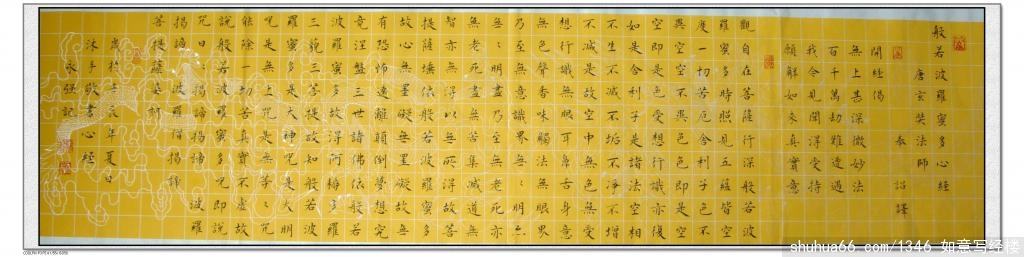 般若波羅蜜多心經
唐玄奘法師
奉詔譯
開經偈
無上甚深微妙法
百千萬劫難遭遇
我今見聞得受持
願解如來真實意
觀自在菩薩行深般若波
羅蜜多時照見五蘊皆空
度一切苦厄舍利子色不
異空空不異色色即是空
空即是色受想行識亦復
如是舍利子是諸法空相
不生不滅不垢不淨不增
不減是故空中無色無受
想行識無眼耳鼻舌身意
無色聲香味觸法無眼界
乃至無意識界無〻明亦
無〻明盡乃至無老死亦
無老死盡無苦集滅道無
智亦無得以無所得故菩
提薩埵依般若波羅蜜多
故心無罣礙無罣礙故無
有恐怖遠離顛倒夢想究
竟涅槃三世諸佛依般若
波羅蜜多故得阿耨多羅
三藐三菩提故知般若波
羅蜜多是大神咒是大明
咒是無上咒是無等〻咒
能除一切苦真實不虛故
說般若波羅蜜多咒即說
咒曰揭諦揭諦波羅
揭諦波羅僧揭諦
菩提薩婆訶
歲於壬辰年夏日
沐手敬書心經
永強記
shuhua66.com/1346 如意写经楼